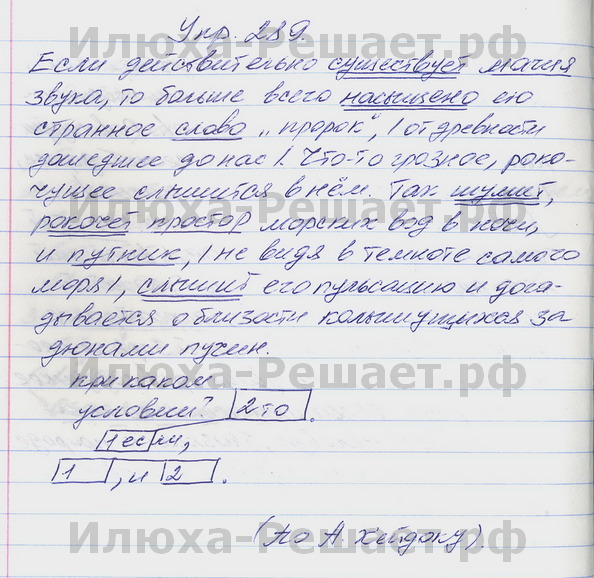 Илюха-Решает.рф
Упр. 289
Если действительно существует магия
звука, то больше всего насыщено ею
странное слово „пророк", / от древности
дошедшее до нас /. Что-то грозное, роко-
чущее слышится в нём. Так шумит,
Илюха-Решает.рф
рокочет простор морских вод в ночи,
и путник, / не видя в темноте самого
моря /, слышит его пульсацию и дога-
дывается о близости колышущихся за
дюнами пучин.
Илюха-Решает.рф
при каком
условии? 2 то .
1 если,
1 , и 2 .
Илюха-Решает.рф
(По А. Хейдоку).